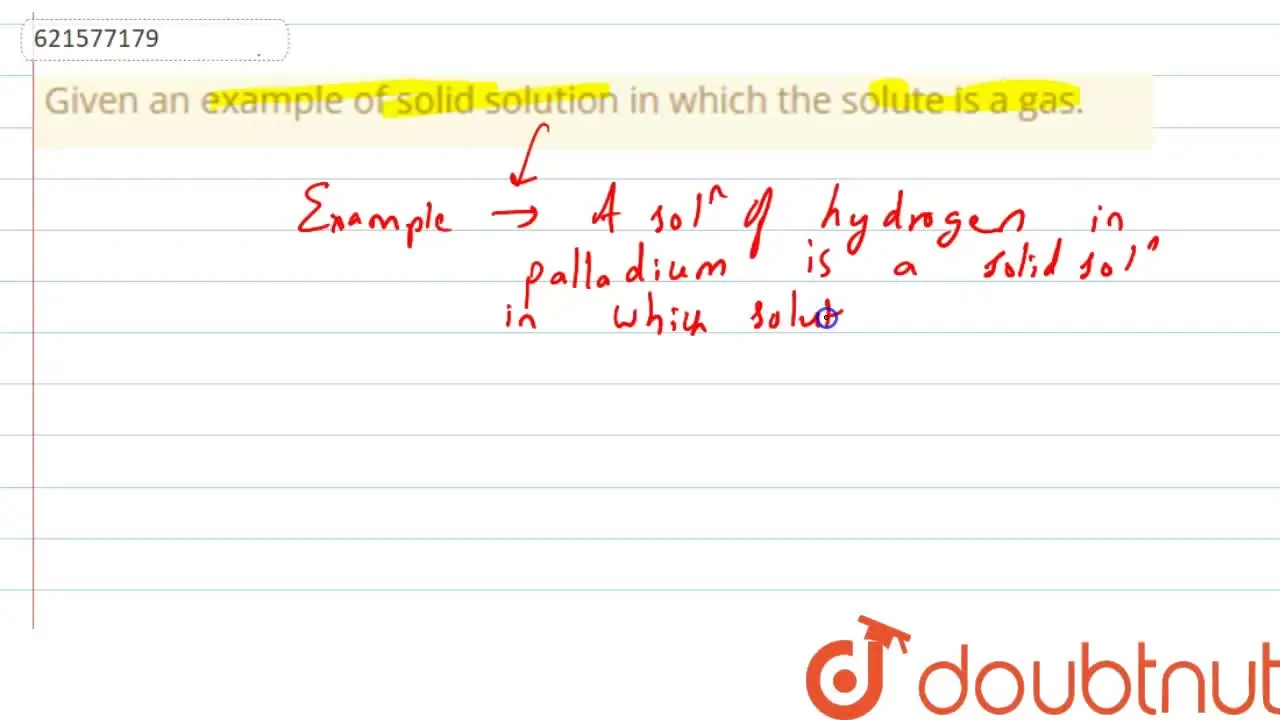 621577179
Given an example of solid solution in which the solute is a gas.
Example → A solⁿ of hydrogen in
palladium is a solid solⁿ
in which solut
doubtnut